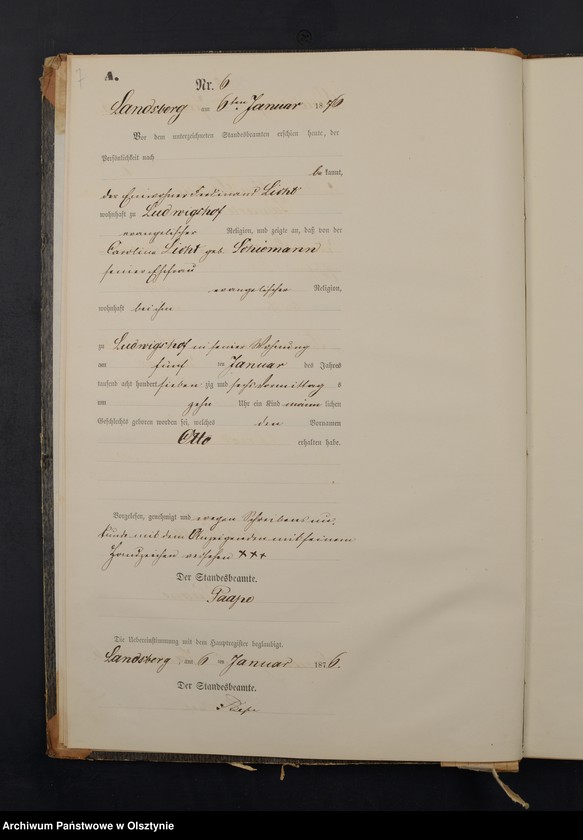 7
A.
Nr. 6
Landsberg am 6ten Januar 1876
Vor dem unterzeichneten Standesbeamten erschien heute, der
Persönlichkeit nach
be kannt,
der Einwohner Ferdinand Licht
wohnhaft zu Ludwigshof
evangelischer Religion, und zeigte an, daß von der
Caroline Licht geb. Schiemann
seiner Ehefrau
evangelischer Religion,
wohnhaft bei ihm
zu Ludwigshof in seiner Wohnung
am fünf ten Januar des Jahres
tausend acht hundert sieben zig und sechs Vormittag s
um zehn Uhr ein Kind männ lichen
Geschlechts geboren worden sei, welches den Vornamen
Otto erhalten habe.
Vorgelesen, genehmigt und wegen Schreibensun-
kunde mit dem Anzeigenden mit seinem
Handzeichen versehen +++
Der Standesbeamte.
Paape
Die Uebereinstimmung mit dem Hauptregister beglaubigt.
Landsberg am 6 ten Januar 1876.
Der Standesbeamte.
Archiwum Państwowe w Olsztynie